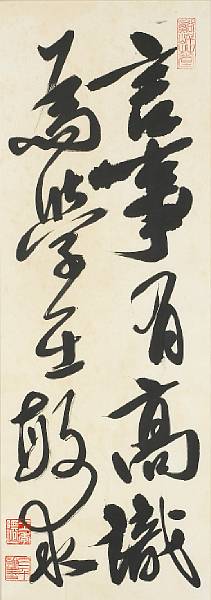 言事有高識
為學在敏求